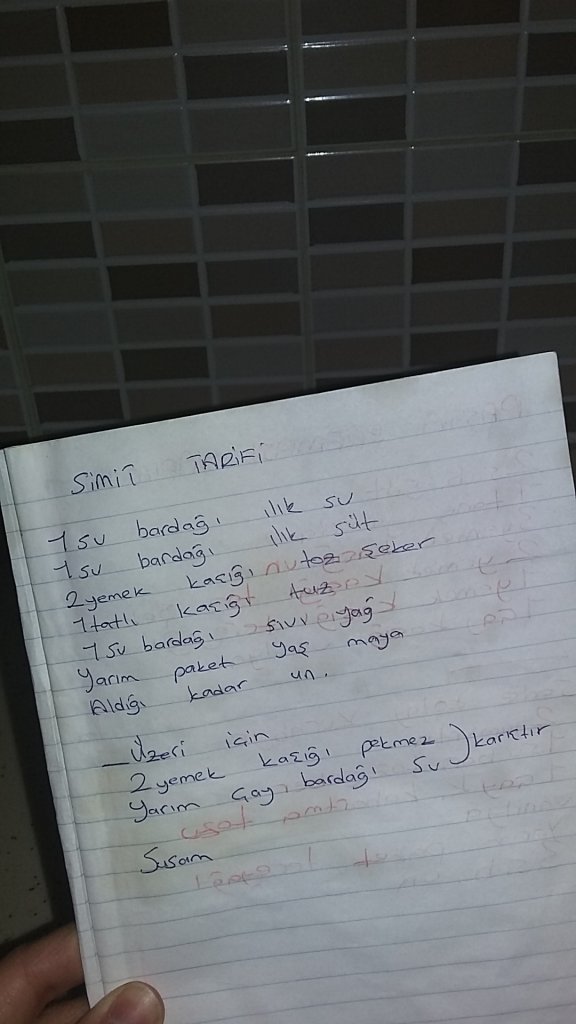 SİMİT TARİFİ
1 su bardağı ılık su
1 su bardağı ılık süt
2 yemek kaşığı toz şeker
1 tatlı kaşığı tuz
1 su bardağı sıvı yağ
Yarım paket yaş maya
Aldığı kadar un.
_Üzeri için
2 yemek kaşığı pekmez ) karıştır
Yarım çay bardağı su
Susam